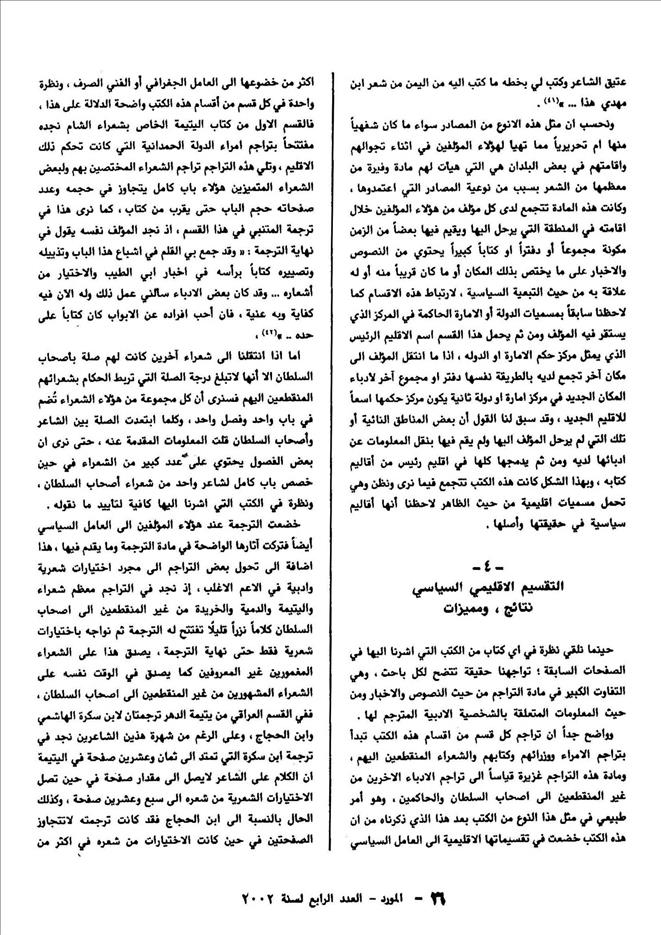 عتيق الشاعر وكتب لي بخطه ما كتب اليه من اليمن من شعر ابن
مهدي هذا ... »(٤١) .
ونحسب ان مثل هذه الانوع من المصادر سواء ما كان شفهياً
منها ام تحريرياً مما تهيا لهؤلاء المؤلفين في اثناء تجوالهم
واقامتهم في بعض البلدان هي التي هيأت لهم مادة وفيرة من
معظمها من الشعر بسبب من نوعية المصادر التي اعتمدوها ،
وكانت هذه المادة تتجمع لدى كل مؤلف من هؤلاء المؤلفين خلال
اقامته في المنطقة التي يرحل اليها ويقيم فيها بعضاً من الزمن
مكونة مجموعاً أو دفتراً او كتاباً كبيراً يحتوي من النصوص
والاخبار على ما يختص بذلك المكان أو ما كان قريباً منه أو له
علاقة به من حيث التبعية السياسية ، لارتباط هذه الاقسام كما
لاحظنا سابقاً بمسميات الدولة أو الامارة الحاكمة في المركز الذي
يستقر فيه المؤلف ومن ثم يحمل هذا القسم اسم الاقليم الرئيس
الذي يمثل مركز حكم الامارة او الدوله ، اذا ما انتقل المؤلف الى
مكان آخر تجمع لديه بالطريقة نفسها دفتر او مجموع آخر لأدباء
المكان الجديد في مركز امارة او دولة ثانية يكون مركز حكمها اسماً
للاقليم الجديد ، وقد سبق لنا القول أن بعض المناطق النائية أو
تلك التي لم يرحل المؤلف اليها ولم يقم فيها بنقل المعلومات عن
ادبائها لديه ومن ثم يدمجها كلها في اقليم رئيس من أقاليم
كتابه ، وبهذا الشكل كانت هذه الكتب تتجمع فيما نرى ونظن وهي
تحمل مسميات اقليمية من حيث الظاهر لاحظنا أنها أقاليم
سياسية في حقيقتها وأصلها .
- ٤ -
التقسيم الاقليمي السياسي
نتائج ، ومميزات
حينما نلقي نظرة في اي كتاب من الكتب التي اشرنا اليها في
الصفحات السابقة ؛ تواجهنا حقيقة تتضح لكل باحث ، وهي
التفاوت الكبير في مادة التراجم من حيث النصوص والاخبار ومن
حيث المعلومات المتعلقة بالشخصية الادبية المترجم لها .
وواضح جداً ان تراجم كل قسم من اقسام هذه الكتب تبدأ
بتراجم الامراء ووزرائهم وكتابهم والشعراء المنقطعين اليهم ،
ومادة هذه التراجم غزيرة قياساً الى تراجم الادباء الاخرين من
غير المنقطعين الى اصحاب السلطان والحاكمين ، وهو أمر
طبيعي في مثل هذا النوع من الكتب بعد هذا الذي ذكرناه من ان
هذه الكتب خضعت في تقسيماتها الاقليمية الى العامل السياسي
اكثر من خضوعها الى العامل الجغرافي أو الفني الصرف ، ونظرة
واحدة في كل قسم من أقسام هذه الكتب واضحة الدلالة على هذا ،
فالقسم الاول من كتاب اليتيمة الخاص بشعراء الشام نجده
مفتتحاً بتراجم امراء الدولة الحمدانية التي كانت تحكم ذلك
الاقليم ، وتلي هذه التراجم تراجم الشعراء المختصين بهم ولبعض
الشعراء المتميزين هؤلاء باب كامل يتجاوز في حجمه وعدد
صفحاته حجم الباب حتى يقرب من كتاب ، كما نرى هذا في
ترجمة المتنبي في هذا القسم ، اذ نجد المؤلف نفسه يقول في
نهاية الترجمة : « وقد جمع بي القلم في اشباع هذا الباب وتذييله
وتصييره كتاباً برأسه في اخبار ابي الطيب والاختيار من
أشعاره ... وقد كان بعض الادباء سألني عمل ذلك وله الآن فيه
كفاية وبه عنية ، فان أحب افراده عن الابواب كان كتاباً على
حده .. »(٤٢) .
اما اذا انتقلنا الى شعراء آخرين كانت لهم صلة بأصحاب
السلطان الا أنها لاتبلغ درجة الصلة التي تربط الحكام بشعرائهم
المنقطعين اليهم فسنرى أن كل مجموعة من هؤلاء الشعراء تُضم
في باب واحد وفصل واحد ، وكلما ابتعدت الصلة بين الشاعر
وأصحاب السلطان قلت المعلومات المقدمة عنه ، حتى نرى ان
بعض الفصول يحتوي على عدد كبير من الشعراء في حين
خصص باب كامل لشاعر واحد من شعراء أصحاب السلطان ،
ونظرة في الكتب التي اشرنا اليها كافية لتأييد ما نقوله .
خضعت الترجمة عند هؤلاء المؤلفين الى العامل السياسي
أيضاً فتركت آثارها الواضحة في مادة الترجمة وما يقدم فيها ، هذا
اضافة الى تحول بعض التراجم الى مجرد اختيارات شعرية
وادبية في الاعم الاغلب ، إذ نجد في التراجم معظم شعراء
واليتيمة والدمية والخريدة من غير المنقطعين الى اصحاب
السلطان كلاماً نزراً قليلًا تفتتح له الترجمة ثم نواجه باختيارات
شعرية فقط حتى نهاية الترجمة ، يصدق هذا على الشعراء
المغمورين غير المعروفين كما يصدق في الوقت نفسه على
الشعراء المشهورين من غير المنقطعين الى اصحاب السلطان ،
ففي القسم العراقي من يتيمة الدهر ترجمتان لابن سكرة الهاشمي
وابن الحجاج ، وعلى الرغم من شهرة هذين الشاعرين نجد في
ترجمة ابن سكرة التي تمتد الى ثمان وعشرين صفحة في اليتيمة
ان الكلام على الشاعر لايصل الى مقدار صفحة في حين تصل
الاختيارات الشعرية من شعره الى سبع وعشرين صفحة ، وكذلك
الحال بالنسبة الى ابن الحجاج فقد كانت ترجمته لاتتجاوز
الصفحتين في حين كانت الاختيارات من شعره في اكثر من
٢٦ - المورد - العدد الرابع لسنة ٢٠٠٢